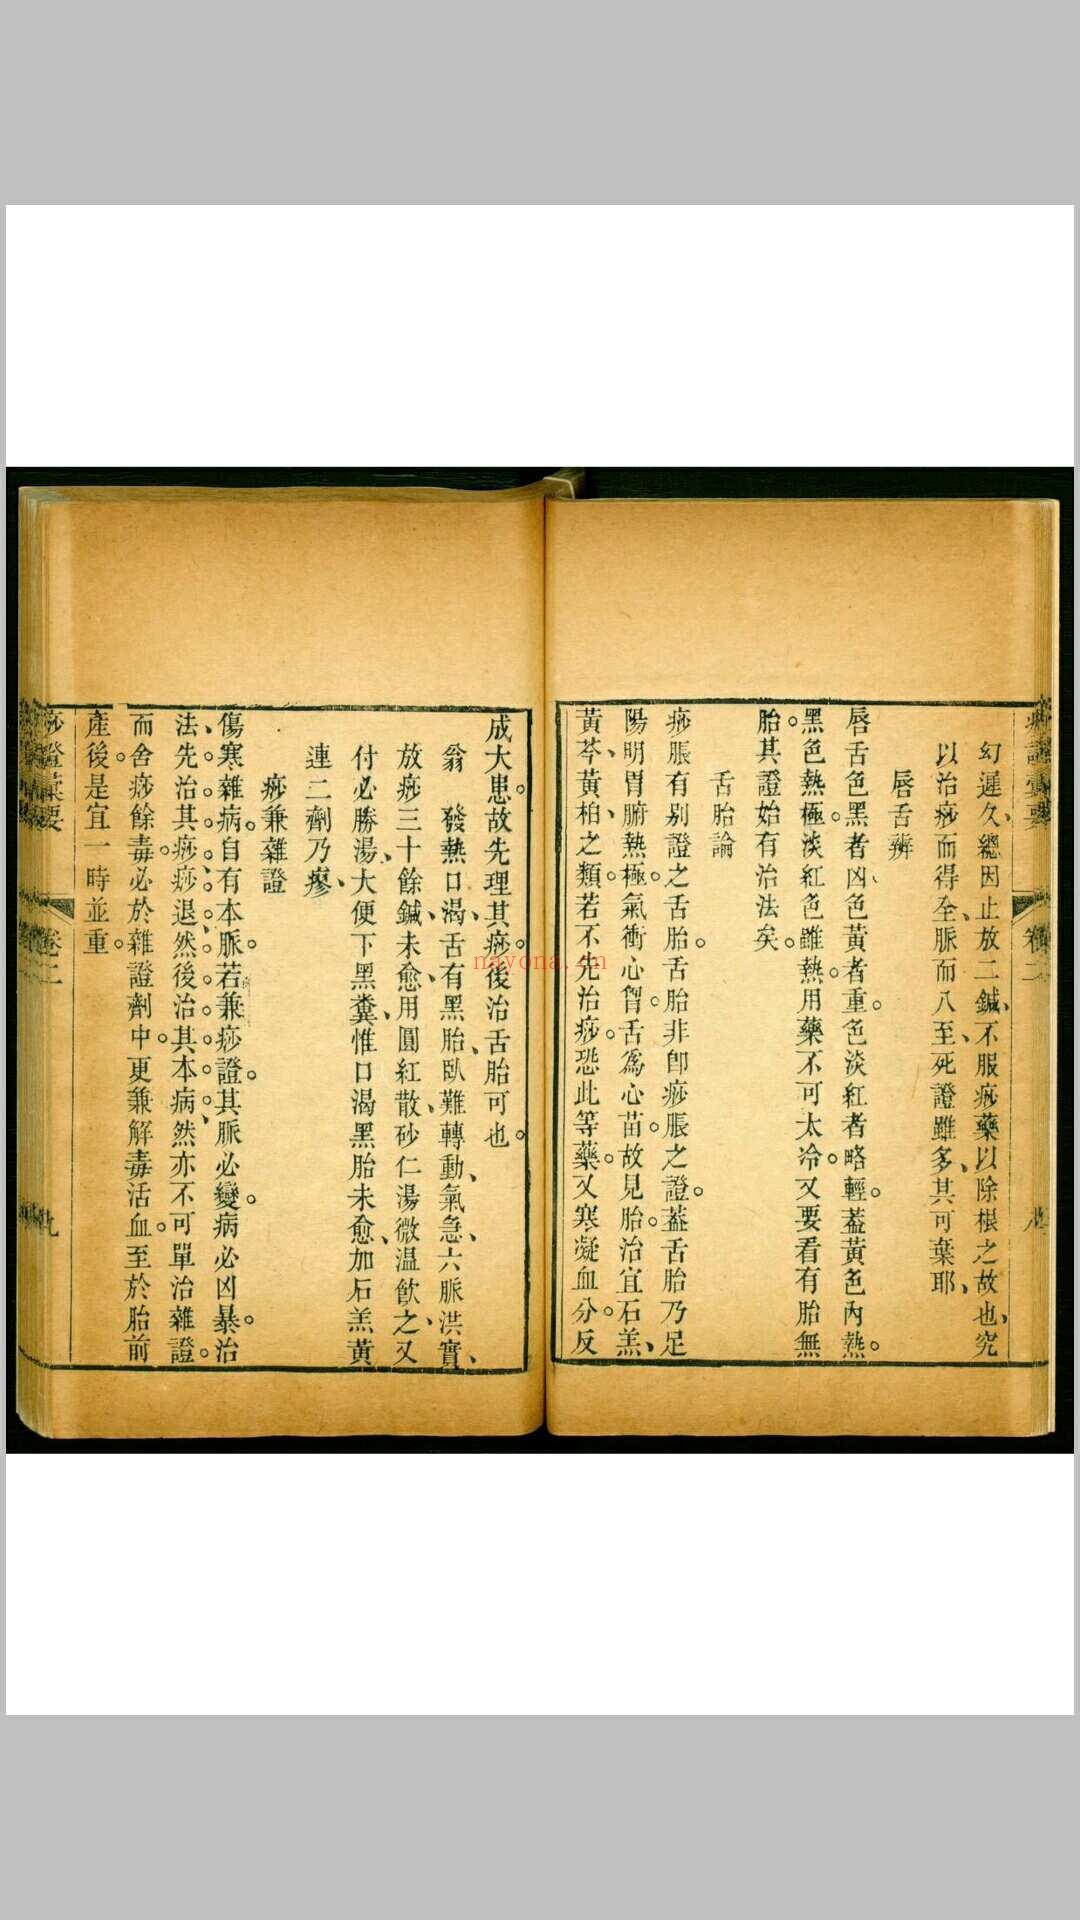 幻遲久、總因止放二鍼、不服痧藥以除根之故也、究
以治痧而得全、脈而八至、死證雖多、其可棄耶、
唇舌辨
唇舌色黑者凶、色黃者重。色淡紅者略輕。蓋黃色內熱。
黑色熱極。淡紅色雖熱。用藥不可太冷。又要看有胎無
胎。其證始有治法矣。
舌胎論
痧脹有別證之舌胎。舌胎非卽痧脹之證。蓋舌胎乃足
陽明胃腑熱極。氣衝心胷。舌爲心苗。故見胎。治宜石羔、
黃芩、黃柏、之類。若不先治痧。恐此等藥。又寒凝血分。反
成大患。故先理其痧。後治舌胎可也。
翁 發熱口渴、舌有黑胎、臥難轉動、氣急、六脈洪實、
放痧三十餘鍼、未愈、用圓紅散、砂仁湯微温飮之、又
付必勝湯、大便下黑糞、惟口渴黑胎未愈、加石羔黃
連二劑乃瘳、
痧兼雜證
傷寒雜病。自有本脈。若兼痧證。其脈必變。病必凶暴。治
法、先治其痧。痧退。然後治其本病、然亦不可單治雜證。
而舍痧餘毒。必於雜證劑中。更兼解毒活血。至於胎前
產後。是宜一時並重。
痧證彙要
卷二
九
nayona.cn